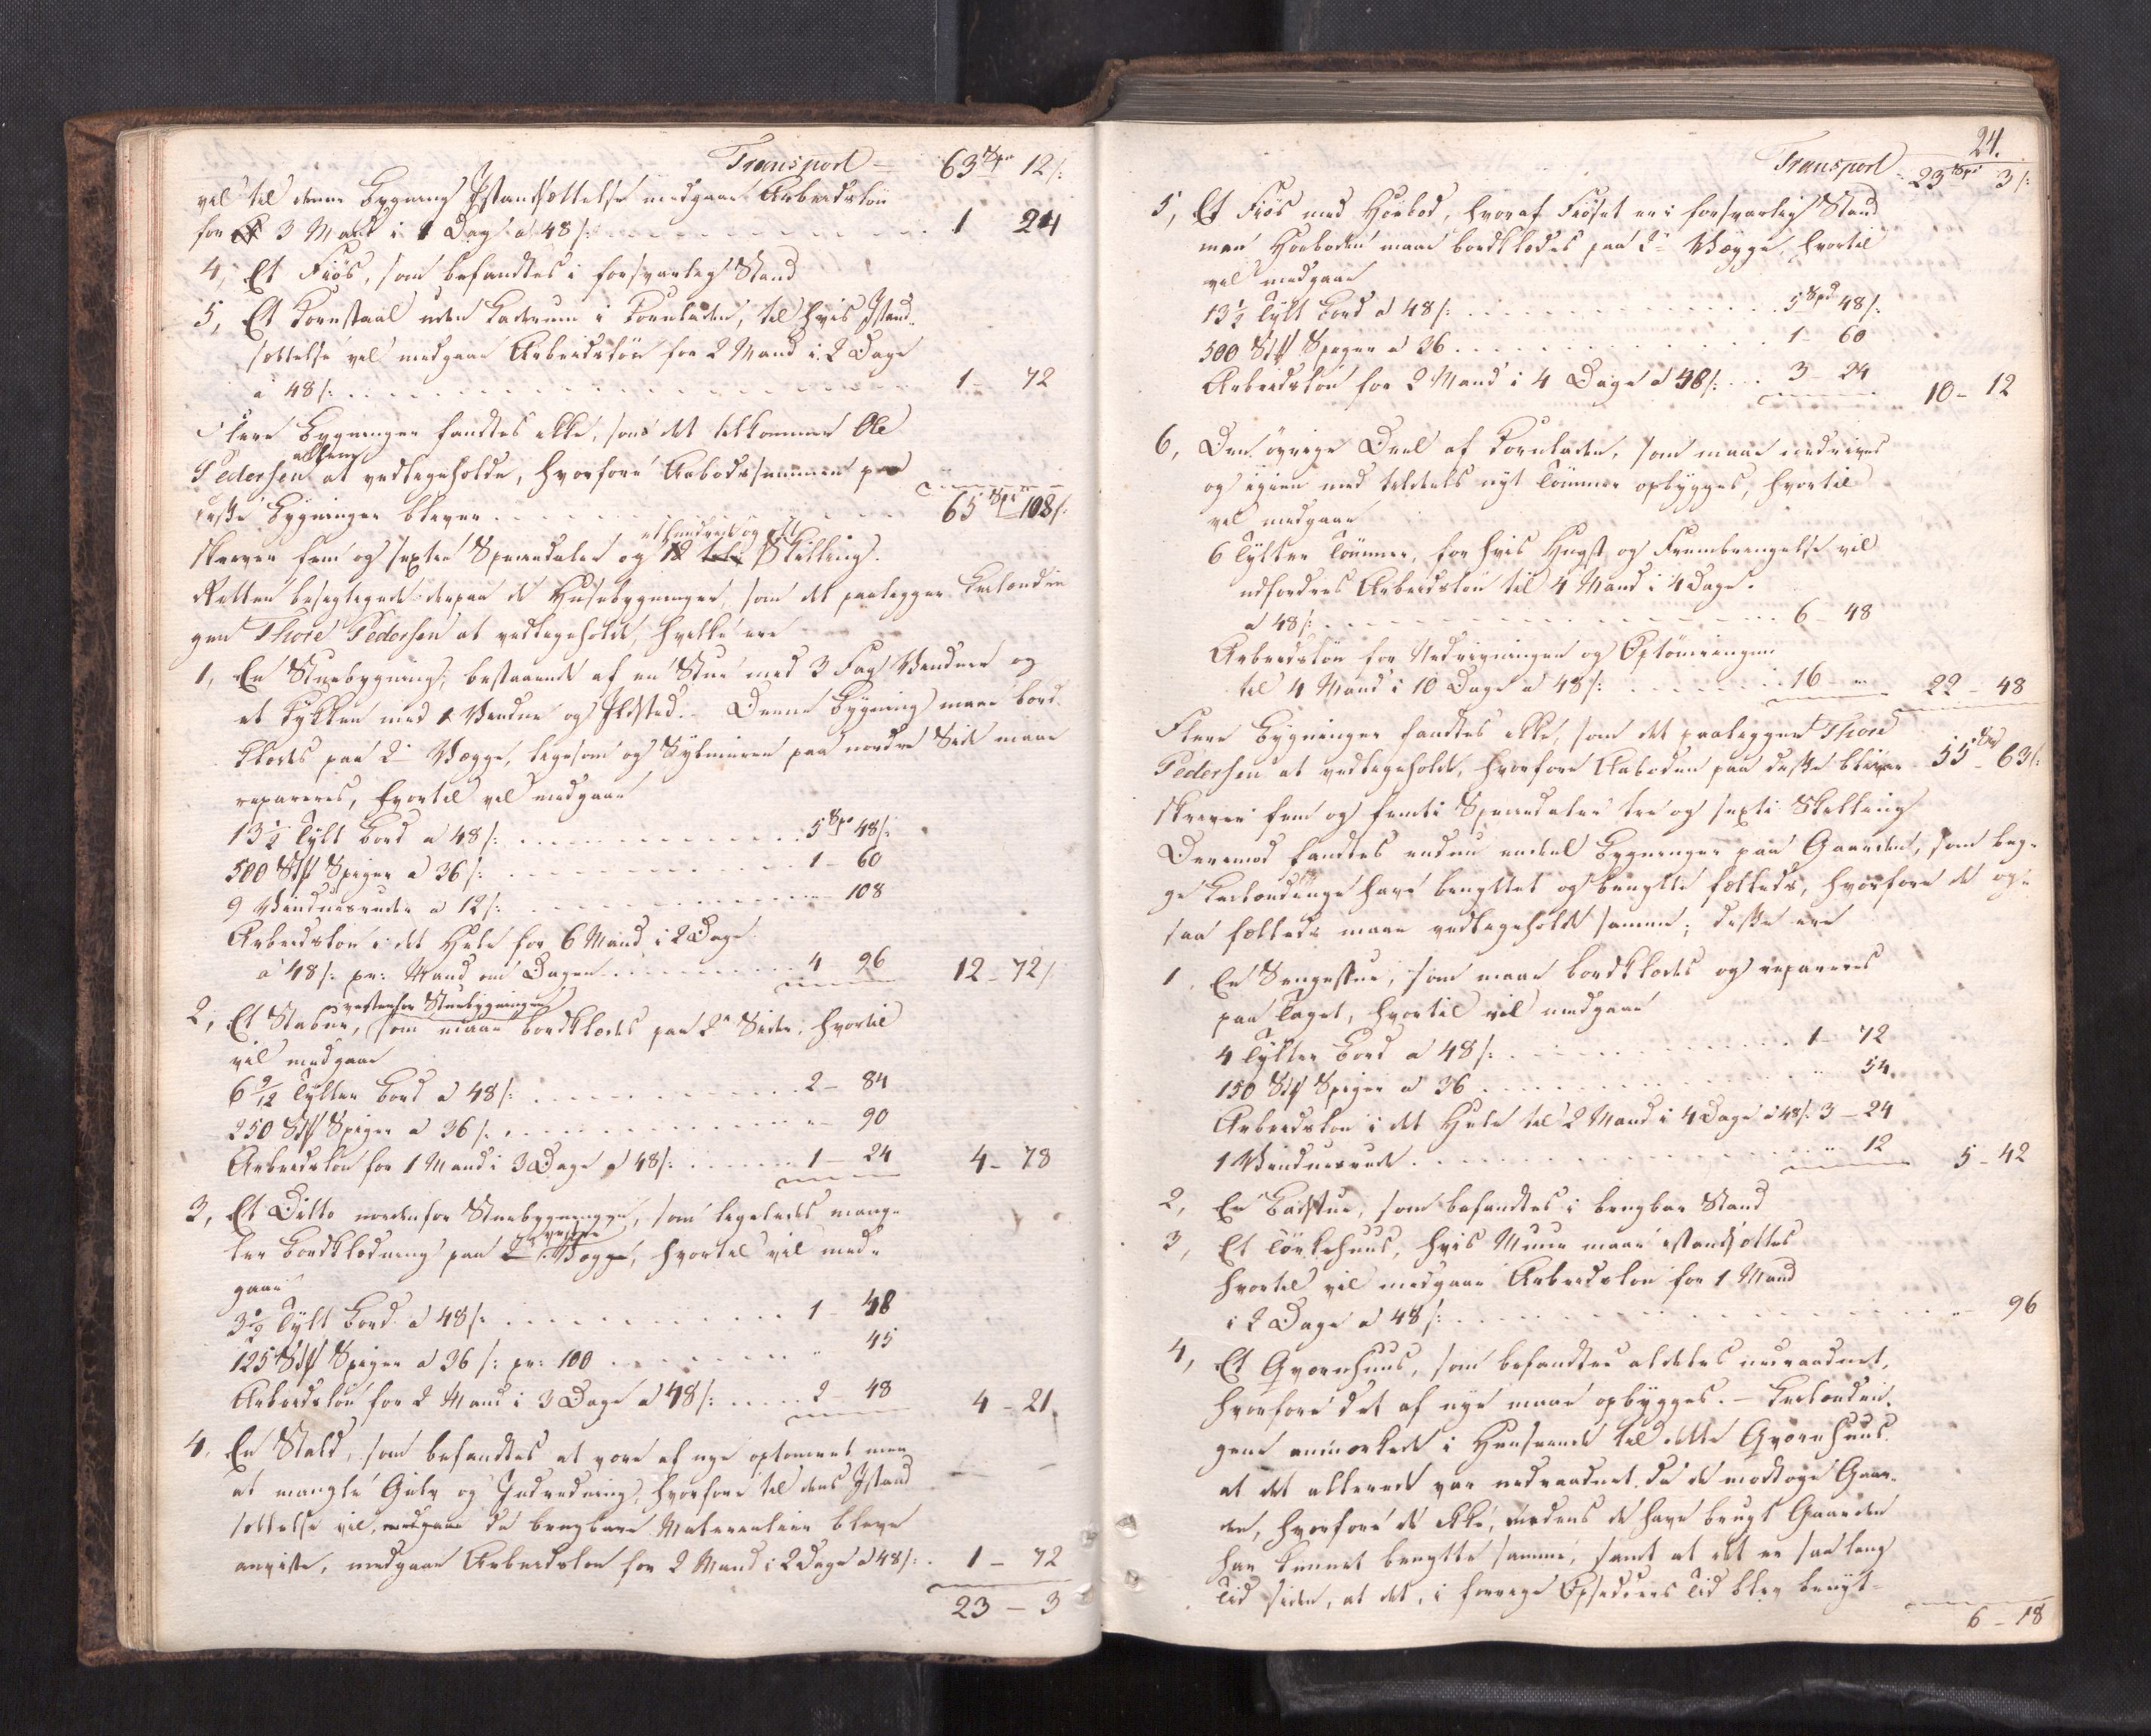 Transport = 63 Spd 12 ß:
vil til denne Bygnings Istandsættelse medgaae Arbeidsløn
for 3 Mand i 1 Dag a 48 ß: . . . . 1 24
4, Et Fiøs, som befandtes i forsvarlig Stand
5, Et Kornstaal uden Laderum i Kornladen, til hvis Istand-
sættelse vil medgaae Arbeidsløn for 2 Mand i 2 Dage
a 48 ß: . . . . 1 - 72
Flere Bygninger fandtes ikke, som det tilkommer Ole
Pedersen allene at vedligeholde, hvorfore Aabodssummen paa
disse Bygninger bliver . . . . 65 Spd 108 ß.
skriver fem og sexti Speciedaler og ethundrede og otte Skilling.
Retten besigtigede derpaa de Huusebygninger, som det paaligger Leilændin
gen Thore Pedersen at vedligeholde, hvilke ere
1, En Stuebygning, bestaaende af en Stue med 3 Fag Vinduer og
et Kjøkken med 1 Vindue og Ildsted. - Denne Bygning maae bord-
klædes paa 2de Vægge, ligesom og Sylmuren paa nordre Side maae
repareres, hvortil vil medgaae
13 1/2 Tylt Bord a 48 ß: . . . . 5 Spd 48 ß:
500 Stk Spiger a 36 ß: . . . . 1 - 60
9 Vinduesruder a 12 ß: . . . . " - 108
Arbeidsløn i det Hele for 6 Mand i 2 Dage
a 48 ß: pr: Mand om Dagen . . . . 4 96 12 - 72 ß
2, Et Stabur, vestenfor Stuebygningen, som maae bordklædes paa 2de Sider, hvortil
vil medgaae
6 9/12 Tylter Bord a 48 ß: . . . . 2 - 84
250 Stk Spiger a 36 ß: . . . . " - 90
Arbeidsløn for 1 Mand i 3 Dage a 48 ß: . . . . 1 - 24 4 - 78
3, Et Ditto nordenfor Stuebygningen, som ligeledes mang-
ler Bordklædning paa Vægge, hvortil vil med-
gaae
Tylt Bord a 48 ß: . . . . 1 - 48
125 Stk Spiger a 36 ß: pr: 100 . . . . " 45
Arbeidsløn for 2 Mand i 3 Dage a 48 ß: . . . . 2 - 48 4 - 21
4. En Stald, som befandtes at være af nye optømret men
at mangle Gulv og Indredning, hvorfore til dens Istand
sættelse vil, medgaae da brugbare Materialier bleve
anviste, medgaae Arbeidsløn for 2 Mand i 2 Dage a 48 ß: . 1 - 72
23 - 3
24.
Transport = 23 Spd 3 ß:
5, Et Fiøs med Høebod, hvoraf Fiøset er i forsvarlig Stand
men Høeboden maae bordklædes paa 2de Vægge, hvortil
vil medgaae
13 1/2 Tylt Bord a 48 ß: . . . . 5 Spd 48 ß:
500 Stk Spiger a 36 . . . . 1 - 60
Arbeidsløn for 2 Mand i 4 Dage a 48 ß: . . . 3 - 24 10 - 12
6, Den øvrige Deel af Kornladen, som maae nedrives
og igien med tildeels nyt Tømmer opbygges, hvortil
vil medgaae
6 Tylter Tømmer, for hvis Hugst og Frembringelse vil
udfordres Arbeidsløn til 4 Mand i 4 Dage.
a 48 ß: . . . . 6 - 48
Arbeidsløn for Nedrivningen og Optømringen
til 4 Mand i 10 Dage a 48 ß: . . . . 16 " 22 - 48
Flere Bygninger fandtes ikke, som det paaligger Thore
Pedersen at vedligeholde, hvorfore Aaboden paa disse bliver 55 Spd 63 ß:
skriver fem og femti Speciedaler tre og sexti Skilling
Derimod fandtes endnu endeel Bygninger paa Gaarden, som beg-
ge Leilændinge have benyttet og benytte fælleds, hvorfore de og-
saa fælleds maae vedligeholde samme; disse ere
1. En Sengestue, som maae bordklædes og repareres
paa Taget, hvortil vil medgaae
4 Tylter Bord a 48 ß: . . . . 1 - 72
150 Stk Spiger a 36 . . . . " 54.
Arbeidsløn i det Hele til 2 Mand i 4 Dage a 48 ß: 3 - 24
1 Vinduesrude . . . . " 12 5 - 42
2, En Badstue, som befandtes i brugbar Stand
3, Et Tørkehuus, hvis Muur maae istandsættes
hvortil vil medgaae Arbeidsløn for 1 Mand
i 2 Dage a 48 ß: . . . . " - 96
4, Et Qværnhuus, som befandtes aldeles nedraadnet,
hvorfore det af nye maae opbygges. - Leilændin-
gene anmærkede i Henseende til dette Qværnhuus
at det allerede var nedraadnet da de modtoge Gaar-
den, hvorfore de ikke, medens de have brugt Gaarden
har kunnet benytte samme, samt at det er saa lang
Tid siden, at det, i forrige Opsidders Tid blev benyt-
6 - 18